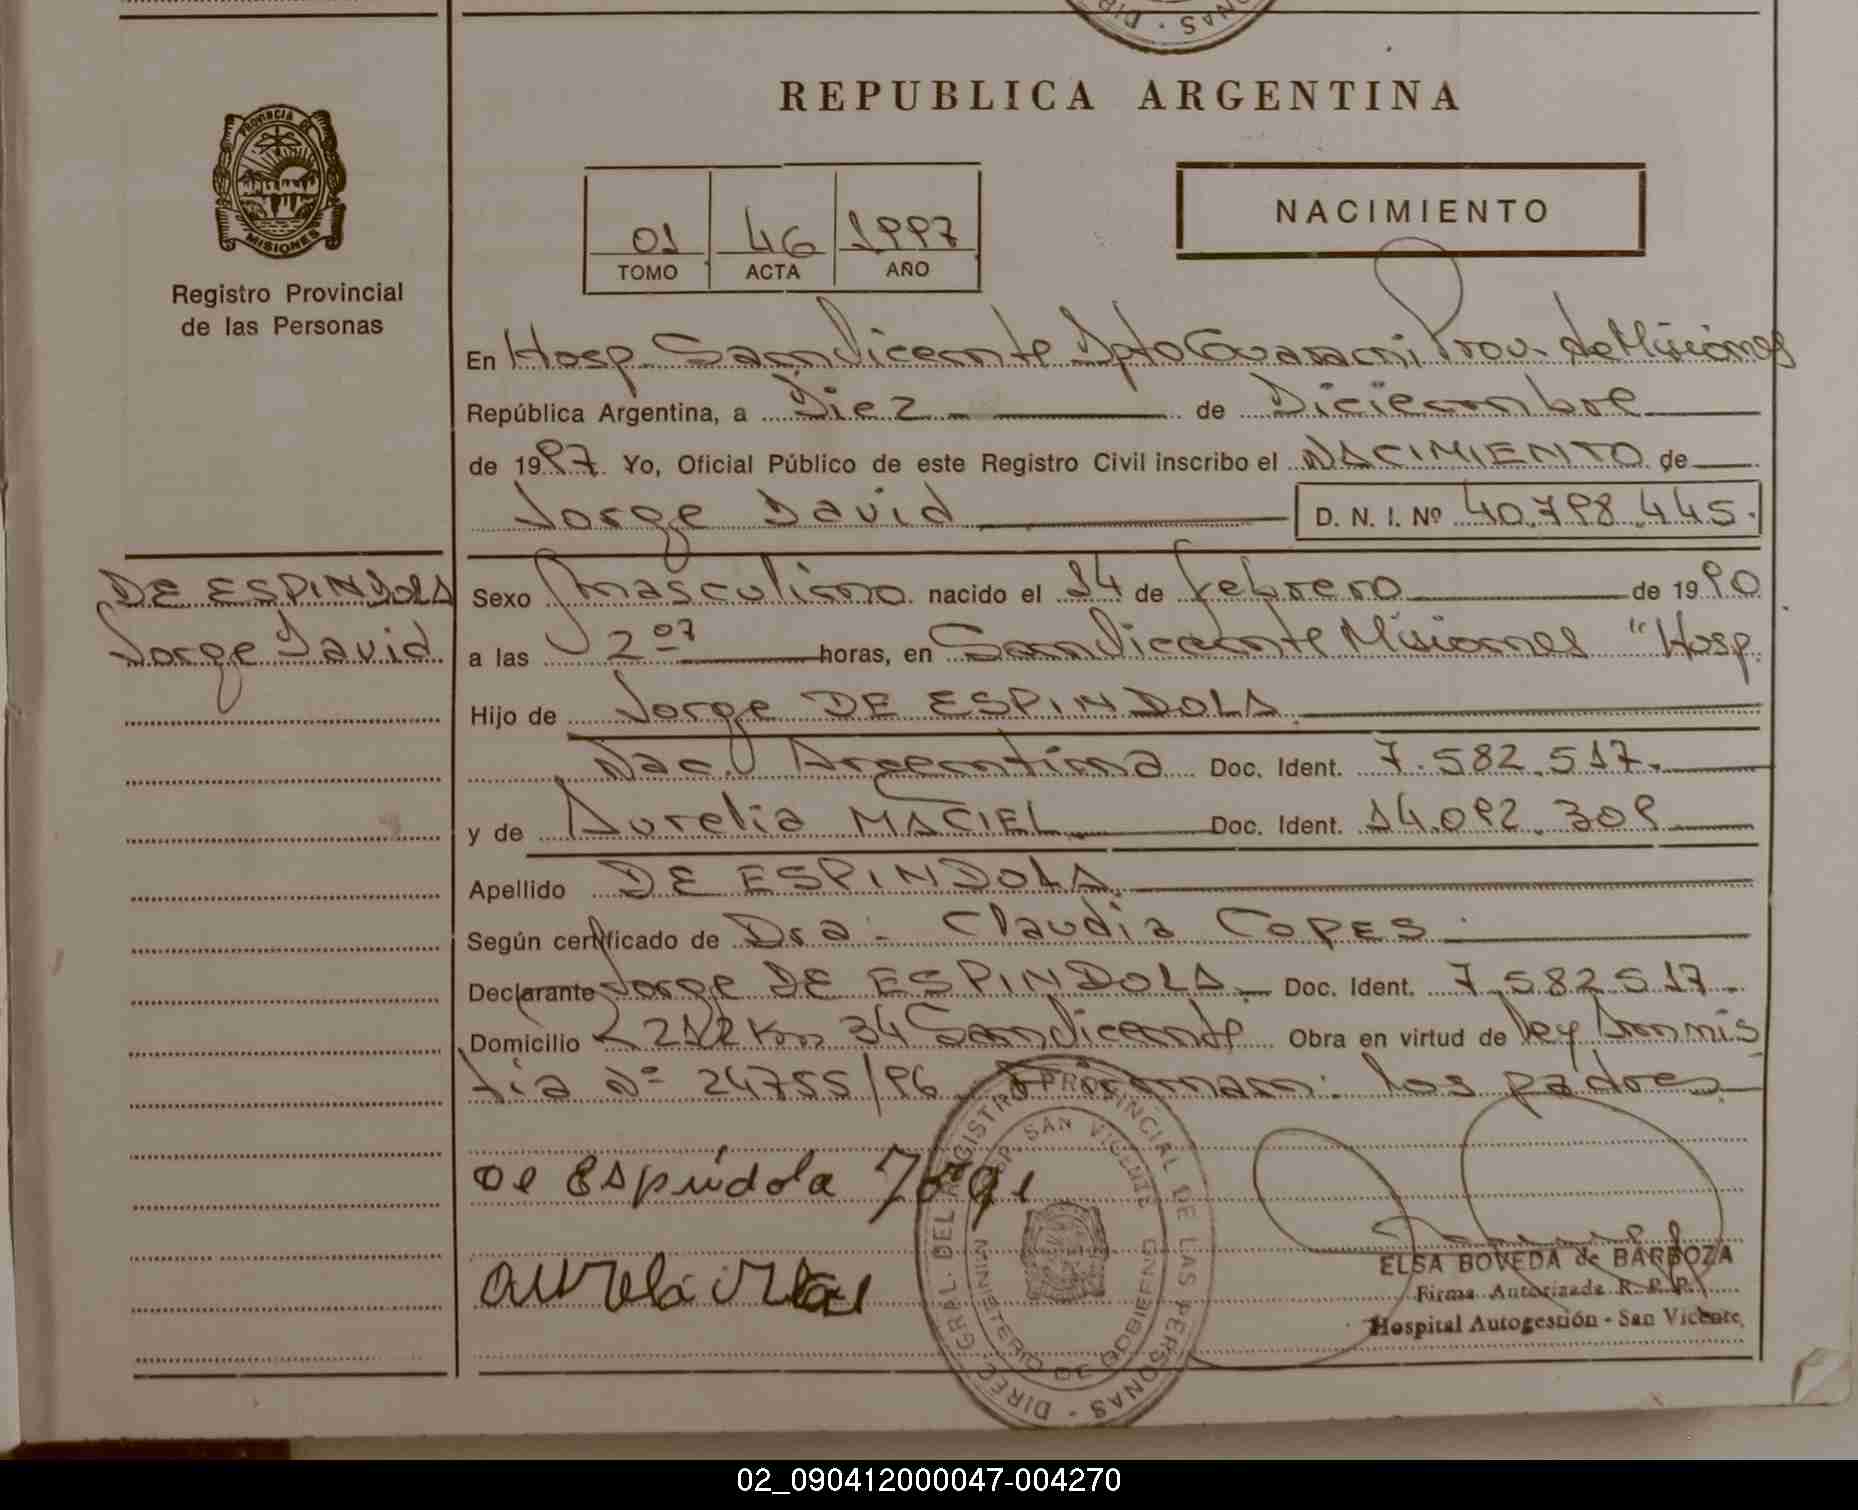 REPUBLICA ARGENTINA
PROVINCIA DE
MISIONES
Registro Provincial
de las Personas
01 46 1997
TOMO ACTA AÑO
NACIMIENTO
En Hosp. San Vicente Dpto Guarani Prov. de Misiones
República Argentina, a Diez de Diciembre
de 1997. Yo, Oficial Público de este Registro Civil inscribo el NACIMIENTO de
Jorge David D. N. I. Nº 40.798.445.
DE ESPINDOLA
Jorge David
Sexo masculino nacido el 14 de febrero de 1990
a las 2 07 horas, en San Vicente Misiones "Hosp.
Hijo de Jorge DE ESPINDOLA.
Nac. Argentina Doc. Ident. 7.582.517.
y de Aurelia MACIEL Doc. Ident. 14.092.309
Apellido DE ESPINDOLA.
Según certificado de Dra. Claudia COPES
Declarante Jorge DE ESPINDOLA. Doc. Ident. 7.582.517.
Domicilio 212 Km 34 San Vicente Obra en virtud de ley Amnis
tia Nº 24755/96. Firman: los padres
De Espíndola Jorge
DIREC. GRAL. DEL REGISTRO PROVINCIAL DE LAS PERSONAS
HOSP. SAN VICENTE
MINISTERIO DE GOBIERNO
ELSA BOVEDA de BARBOZA
Firma Autorizada R. P. P.
Hospital Autogestión - San Vicente
02_090412000047-004270